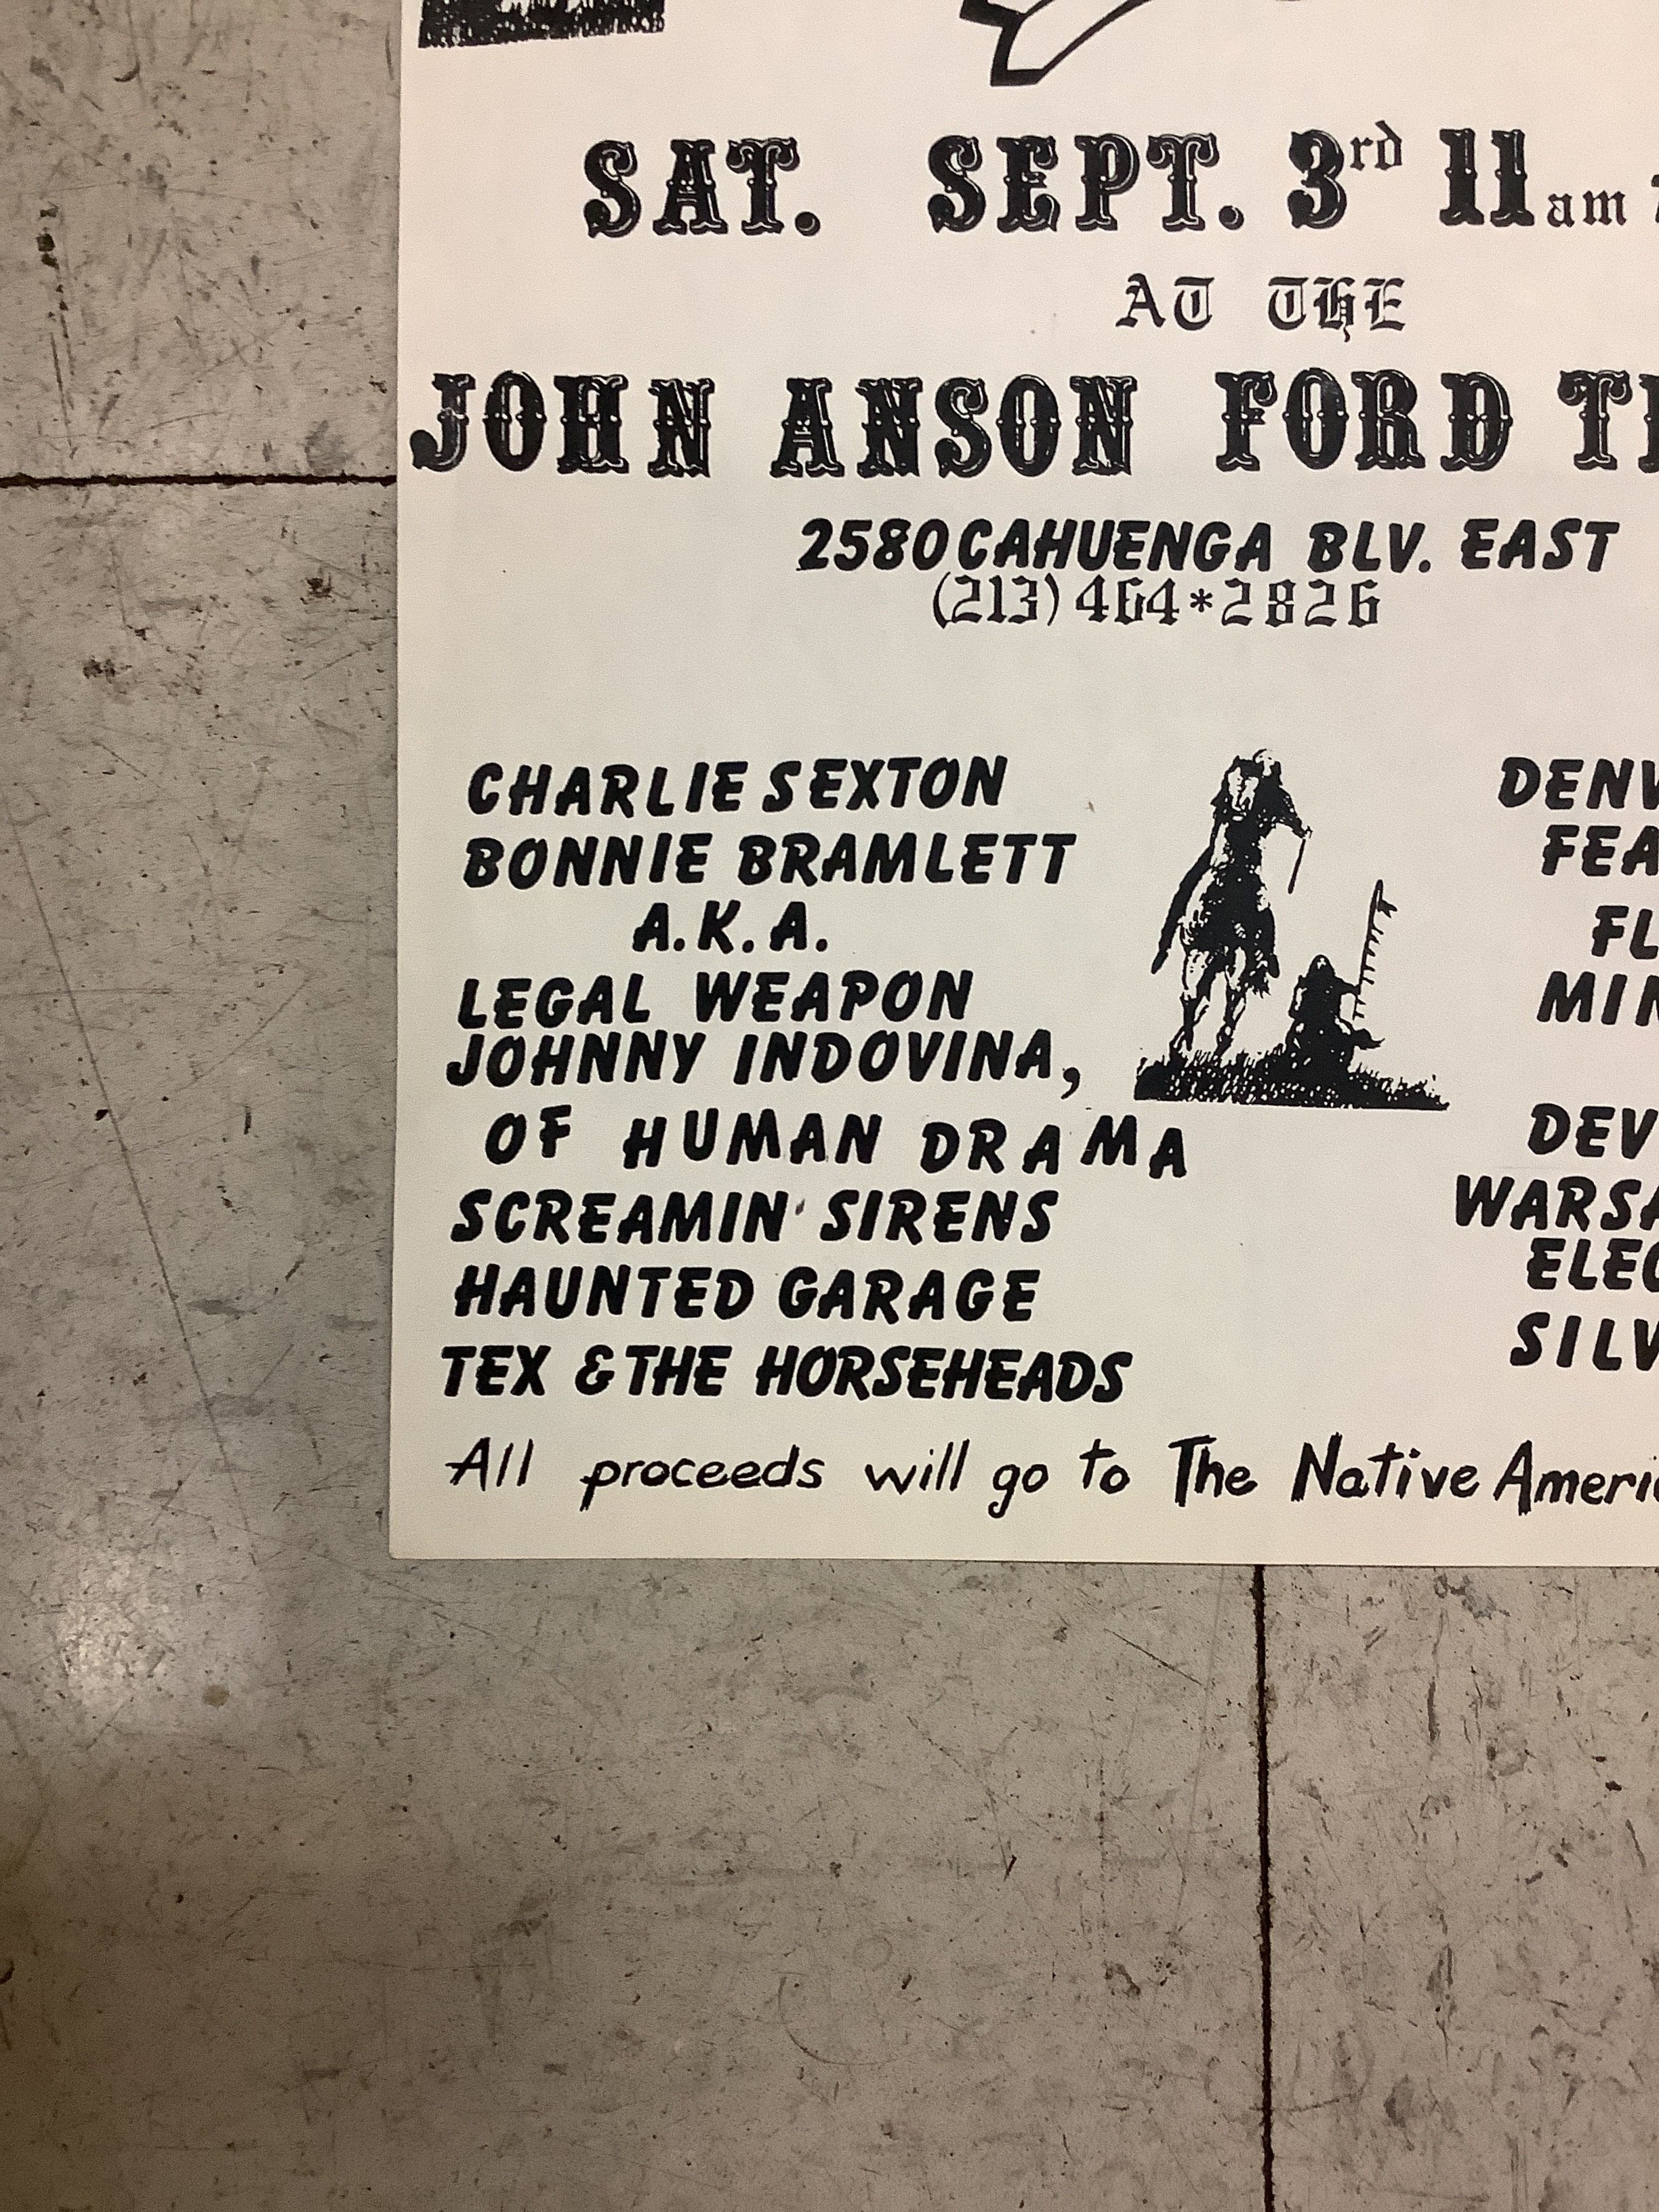 SAT. SEPT. 3rd 11am
AT THE
JOHN ANSON FORD
2580 CAHUENGA BLV. EAST
(213) 464*2826
CHARLIE SEXTON
BONNIE BRAMLETT
A.K.A.
LEGAL WEAPON
JOHNNY INDOVINA,
OF HUMAN DRAMA
SCREAMIN' SIRENS
HAUNTED GARAGE
TEX & THE HORSEHEADS
DENV
FEA
FL
MIN
DEV
WARSA
ELEC
SILV
All proceeds will go to The Native Americ